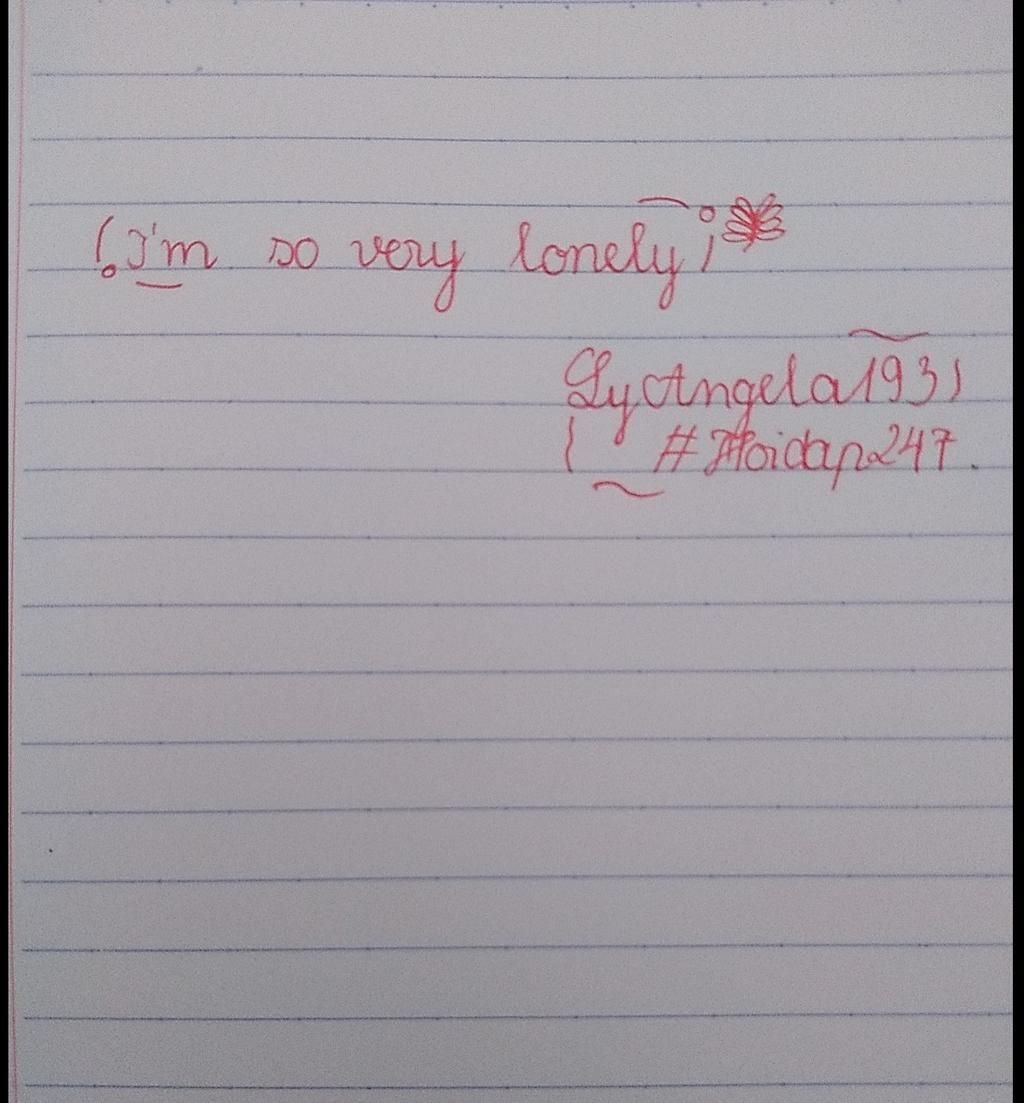 I'm so very lonely
LyAngela1931
#Hoidap247.